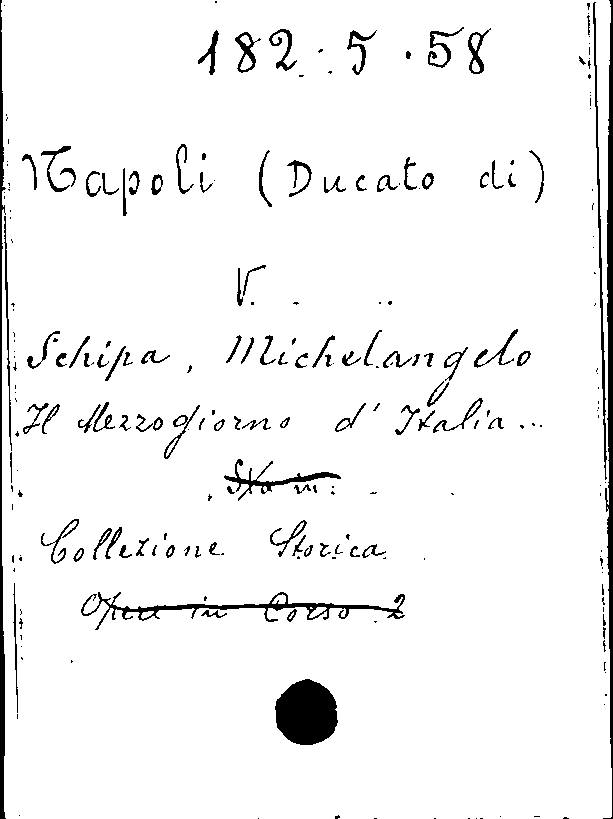 182.5.58
Napoli (Ducato di)
V.
Schipa, Michelangelo
Il Mezzogiorno d'Italia...
Sta in:
Collezione Storica
Opere in Corso 2